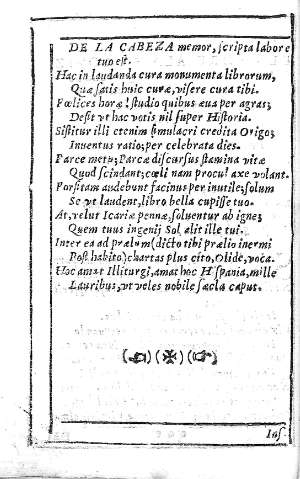 DE LA CABEZA memor, scripta labore
tuo est.
Hac in laudanda cura monumenta librorum,
Quæ satis huic curæ, visere cura tibi.
Fœlices horæ! studio quibus æua per agras;
Desit vt hac votis nil super Historia.
Sistitur illi etenim simulacri credita Origo;
Inuentus ratio; per celebrata dies.
Parce metu; Parcæ discursus stamina vitæ
Quod scindant; cœli nam procul axe volant.
Forsitam audebunt facinus per inutile; solum
Se vt laudent, libro bella cupisse tuo.
At, velut Icariæ pennæ, soluentur ab igne;
Quem tuus ingenij Sol alit ille tui.
Interea ad prælum (dicto tibi prælio inermi
Post habito) chartas plus cito, Olide, voca.
Hoc amat Illiturgi, amat hoc Hispania, mille
Lauribus, vt veles nobile sæcla caput.
Ins.